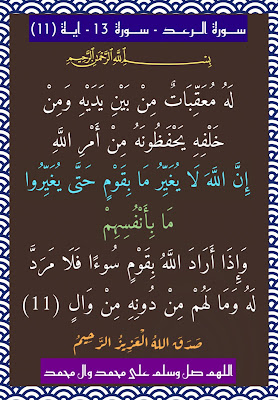 سورة الرعد - سورة 13 - اية (11)
بِسْمِ اللَّهِ الرَّحْمَٰنِ الرَّحِيمِ
لَهُ مُعَقِّبَاتٌ مِنْ بَيْنِ يَدَيْهِ وَمِنْ
خَلْفِهِ يَحْفَظُونَهُ مِنْ أَمْرِ اللَّهِ
إِنَّ اللَّهَ لَا يُغَيِّرُ مَا بِقَوْمٍ حَتَّى يُغَيِّرُوا
مَا بِأَنْفُسِهِمْ
وَإِذَا أَرَادَ اللَّهُ بِقَوْمٍ سُوءًا فَلَا مَرَدَّ
لَهُ وَمَا لَهُمْ مِنْ دُونِهِ مِنْ وَالٍ (11)
صَدَقَ اللهُ الْعَزِيزُ الرَّحِيمُ
اللهم صل وسلم على محمد وال محمد